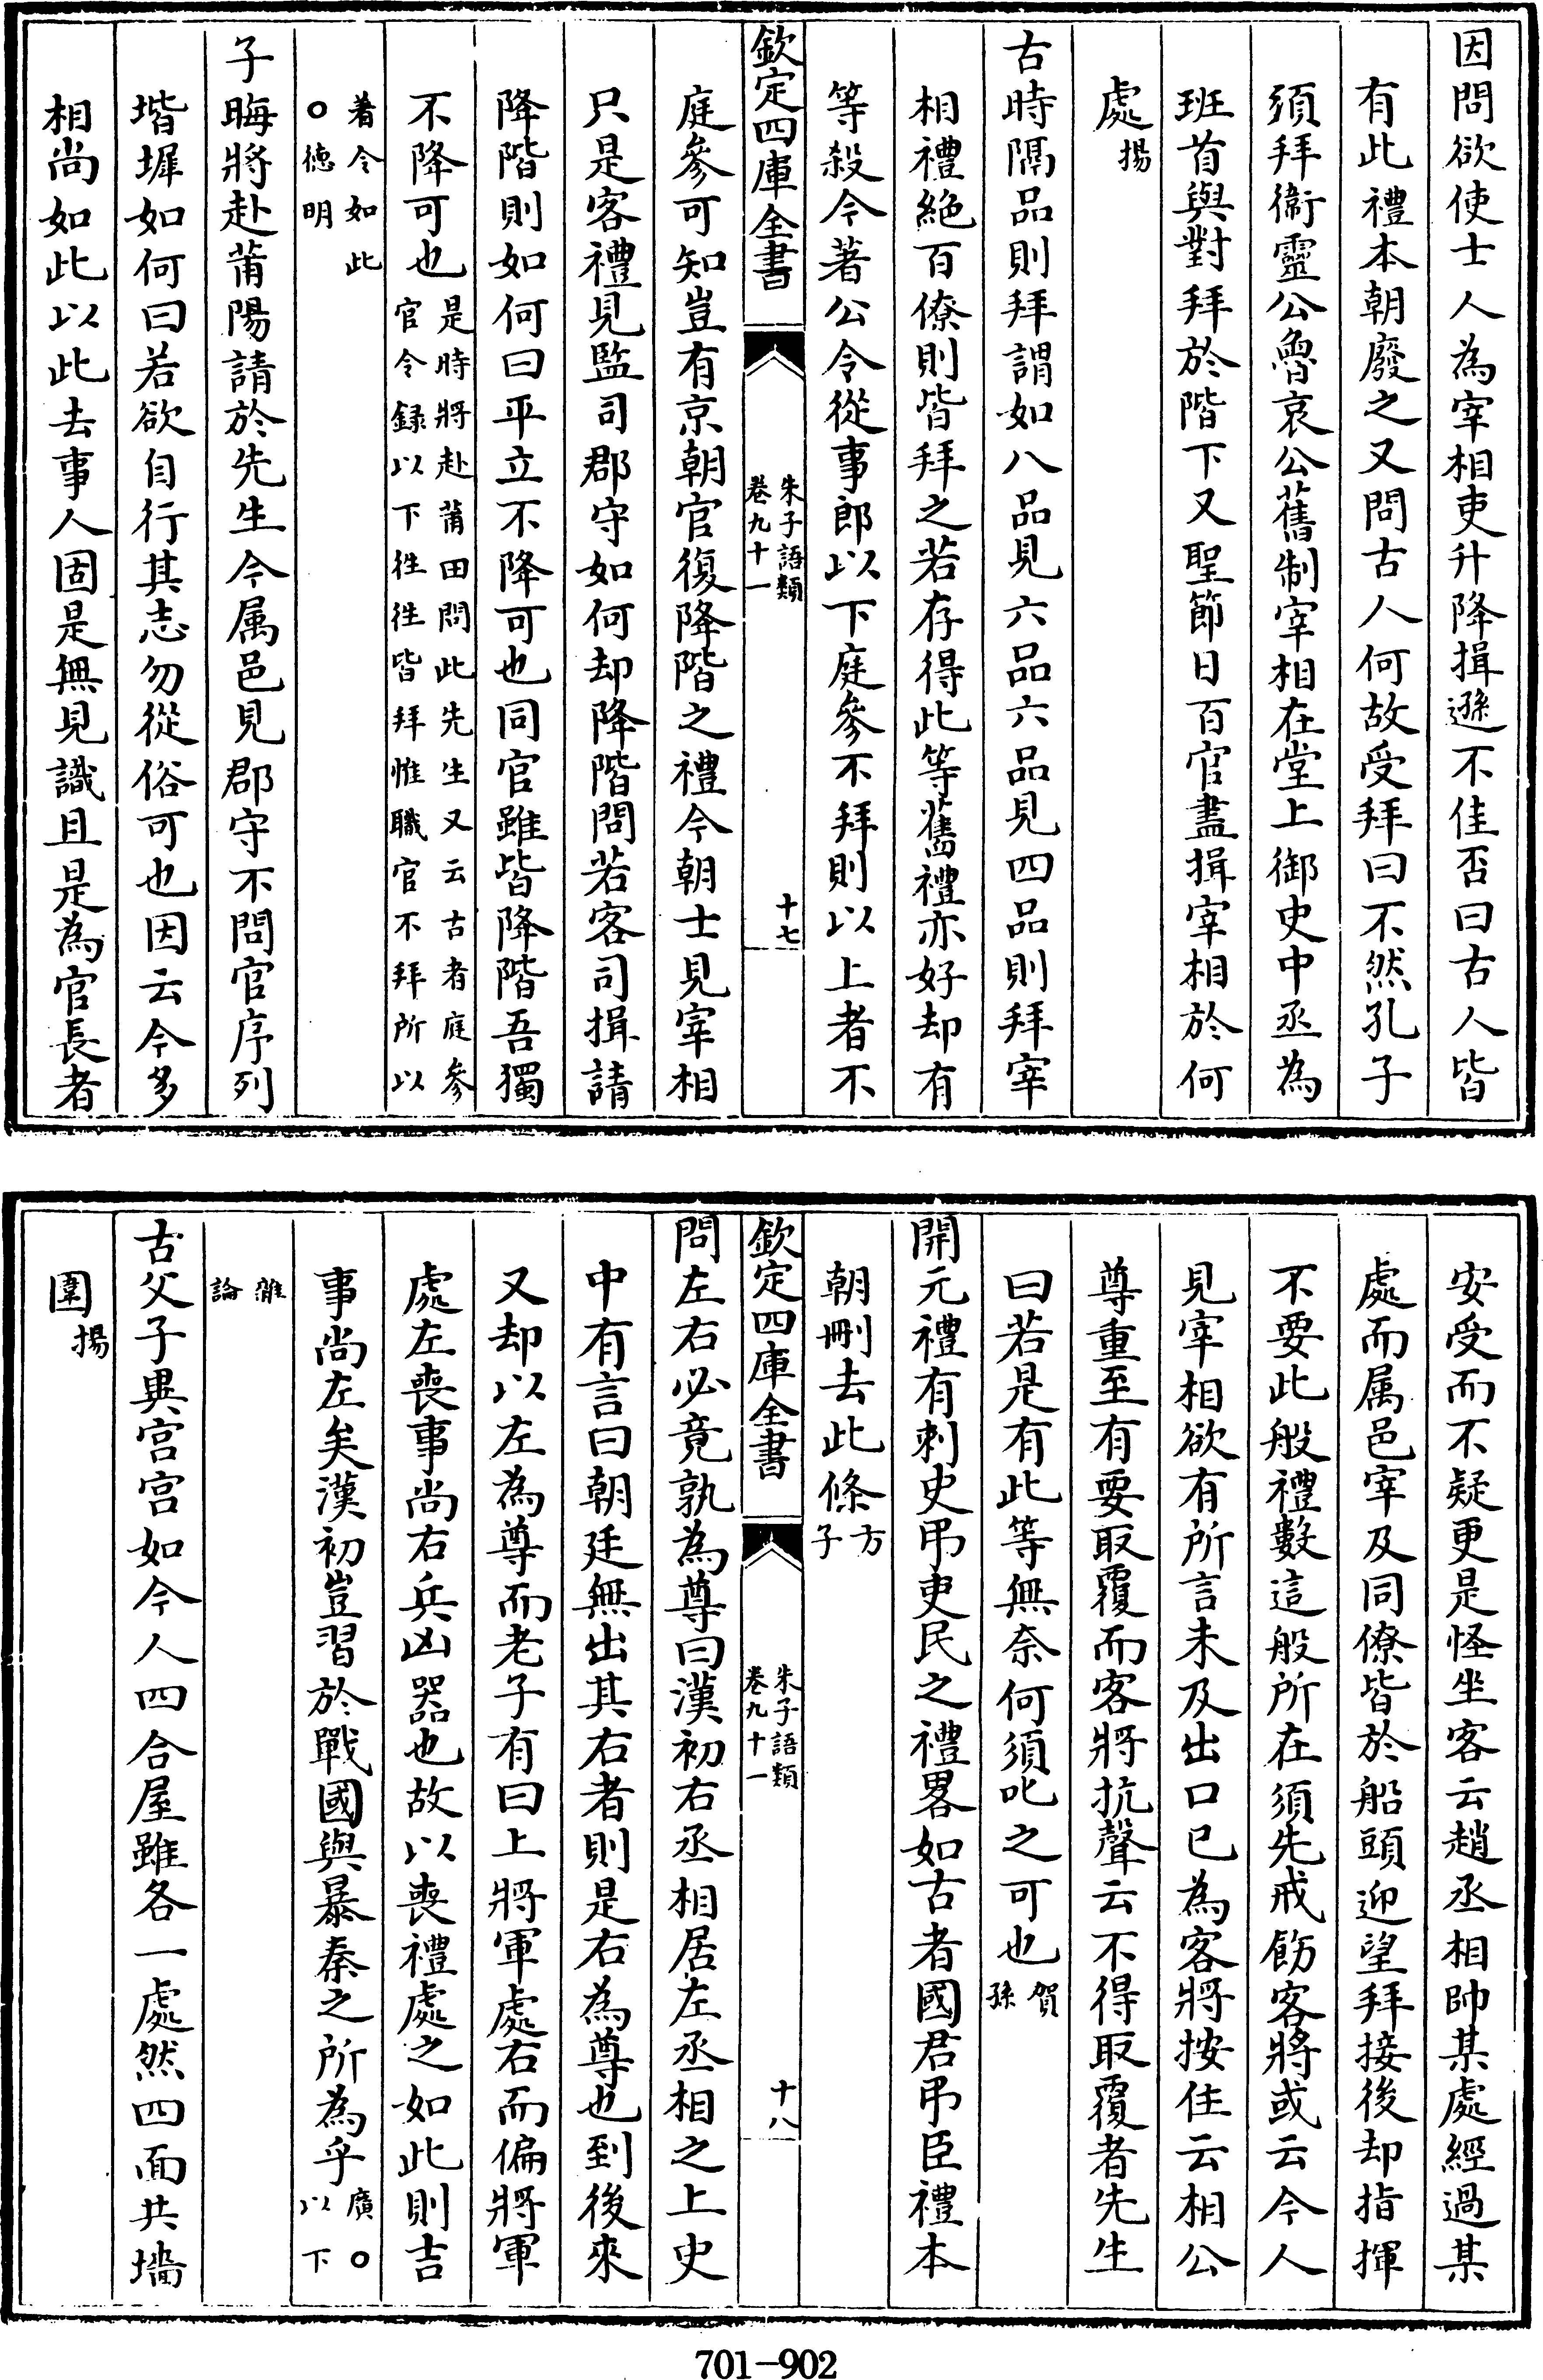 因問欲使士人為宰相吏升降揖遜不佳否曰古人皆
有此禮本朝廢之又問古人何故受拜曰不然孔子
須拜衞靈公魯哀公舊制宰相在堂上御史中丞為
班首與對拜於階下又聖節日百官盡揖宰相於何
處揚
古時隔品則拜謂如八品見六品六品見四品則拜宰
相禮絶百僚則皆拜之若存得此等舊禮亦好却有
等殺今著公令從事郎以下庭參不拜則以上者不
欽定四庫全書
朱子語類
卷九十一
十七
庭參可知豈有京朝官復降階之禮今朝士見宰相
只是客禮見監司郡守如何却降階問若客司揖請
降階則如何曰平立不降可也同官雖皆降階吾獨
不降可也
是時將赴莆田問此先生又云古者庭參
官令録以下徃徃皆拜惟職官不拜所以
着令如此
○德明
子晦將赴莆陽請於先生今属邑見郡守不問官序列
堦墀如何曰若欲自行其志勿從俗可也因云今多
相尚如此以此去事人固是無見識且是為官長者
安受而不疑更是怪坐客云趙丞相帥某處經過某
處而属邑宰及同僚皆於船頭迎望拜接後却指揮
不要此般禮數這般所在須先戒飭客將或云今人
見宰相欲有所言未及出口已為客將按住云相公
尊重至有要取覆而客將抗聲云不得取覆者先生
曰若是有此等無奈何須叱之可也
賀
孫
開元禮有刺史弔吏民之禮畧如古者國君弔臣禮本
朝刪去此條
方
子
欽定四庫全書
朱子語類
卷九十一
十八
問左右必竟孰為尊曰漢初右丞相居左丞相之上史
中有言曰朝廷無出其右者則是右為尊也到後來
又却以左為尊而老子有曰上將軍處右而偏將軍
處左喪事尚右兵凶器也故以喪禮處之如此則吉
事尚左矣漢初豈習於戰國與暴秦之所為乎
廣○
以下
雜
論
古父子異宫宫如今人四合屋雖各一處然四面共墻
圍揚
701-902